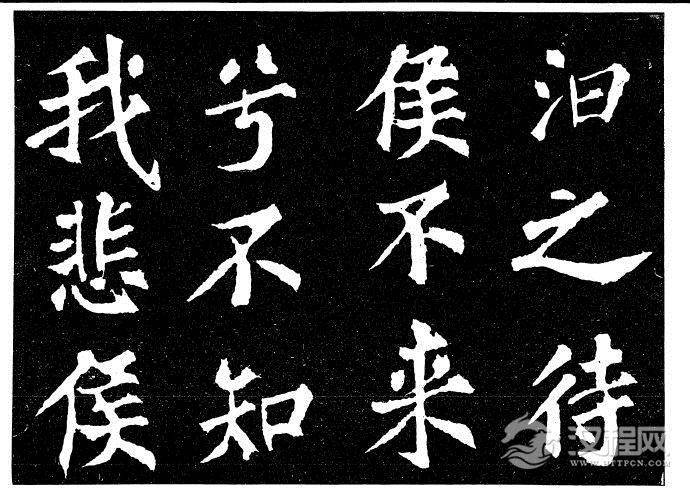 汩之待
侯不来
兮不知
我悲侯
汉程网
WWW.HTTPCN.COM